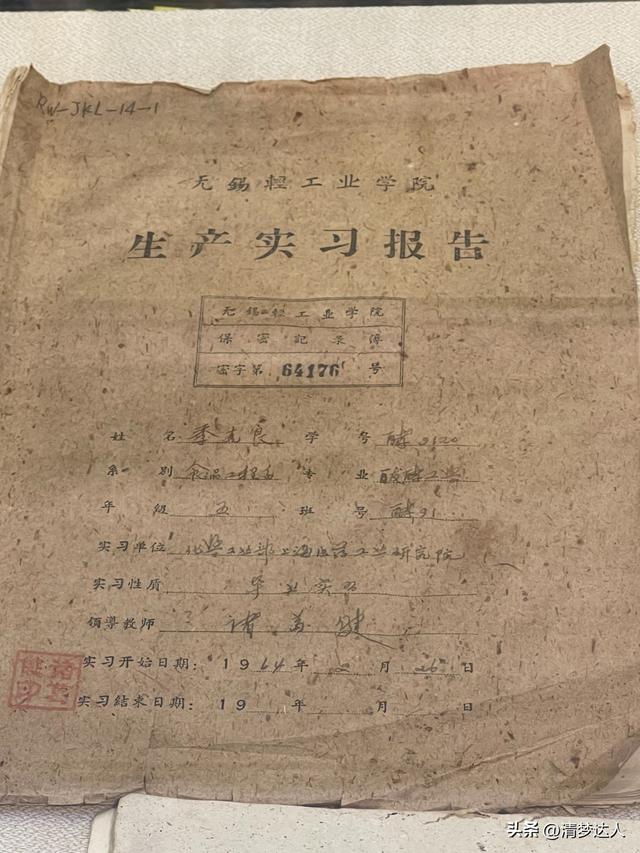 RW-JKL-14-1
无锡轻工业学院
生产实习报告
无锡轻工业学院
保密记录簿
密字第 64176 号
姓名 季克良 学号 酵9120
系别 食品工程系 专业 发酵工学
年级 五 班号 酵91
实习单位 化学工业部上海医药工业研究院
实习性质 毕业实习
领导教师 诸葛健
实习开始日期: 1964年2月26日
实习结束日期: 19 年 月 日
诸葛健印
头条 @清梦达人